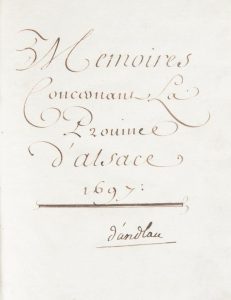 Memoires
Concernant La
Province
d'alsace
1697:
d'andlau